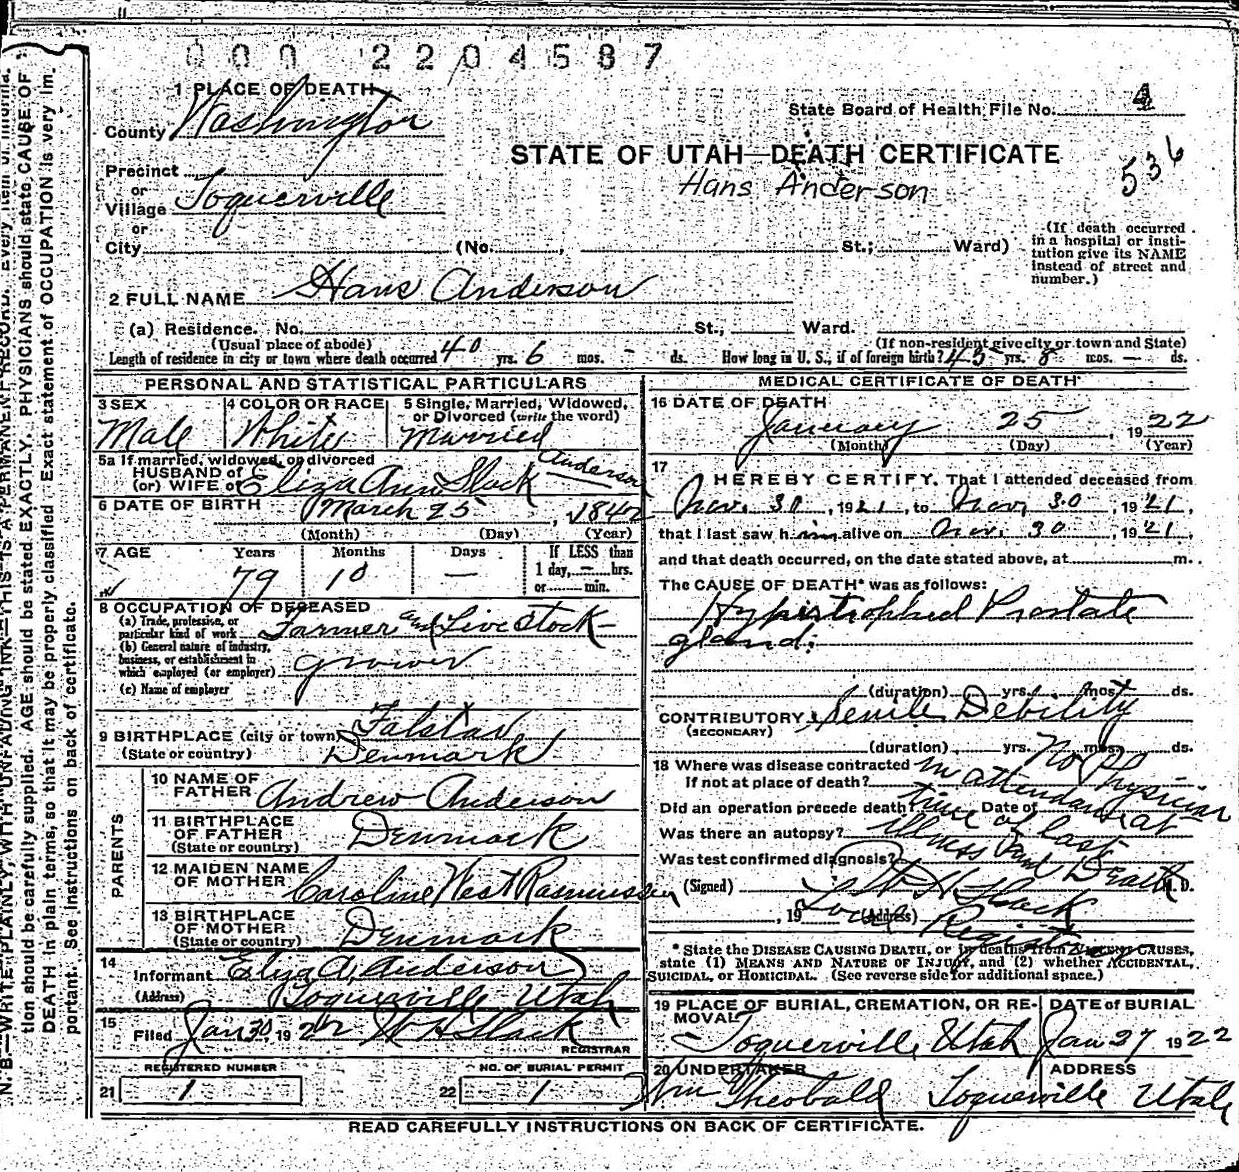 000 2204587
1 PLACE OF DEATH
County Washington
State Board of Health File No. 4
Precinct
STATE OF UTAH—DEATH CERTIFICATE
536
or
Village Toquerville
Hans Anderson
City (No. , St.; Ward)
(If death occurred in a hospital or insti-
tution give its NAME
instead of street and
number.)
2 FULL NAME Hans Anderson
(a) Residence. No. St., Ward.
(Usual place of abode) (If non-resident give city or town and State)
Length of residence in city or town where death occurred 40 yrs. 6 mos. - ds. How long in U. S., if of foreign birth? 45 yrs. 8 mos. — ds.
PERSONAL AND STATISTICAL PARTICULARS
3 SEX Male
4 COLOR OR RACE White
5 Single, Married, Widowed,
or Divorced (write the word)
Married
5a If married, widowed, or divorced
HUSBAND of
(or) WIFE of Eliza Ann Slack Anderson
6 DATE OF BIRTH March 25, 1842
(Month) (Day) (Year)
7 AGE Years Months Days If LESS than
1 day, — hrs.
or min.
79 10 —
8 OCCUPATION OF DECEASED
(a) Trade, profession, or
particular kind of work Farmer and Live stock
(b) General nature of industry,
business, or establishment in
which employed (or employer) grower
(c) Name of employer
9 BIRTHPLACE (city or town) Falster
(State or country) Denmark
PARENTS
10 NAME OF
FATHER Andrew Anderson
11 BIRTHPLACE
OF FATHER
(State or country) Denmark
12 MAIDEN NAME
OF MOTHER Caroline West Rasmussen
13 BIRTHPLACE
OF MOTHER
(State or country) Denmark
14
Informant Eliza A. Anderson
(Address) Toquerville Utah
15
Filed Jan 30, 1922 W H Slack
REGISTRAR
REGISTERED NUMBER
21 1
NO. OF BURIAL PERMIT
22 1
MEDICAL CERTIFICATE OF DEATH
16 DATE OF DEATH
January 25, 1922
(Month) (Day) (Year)
17
I HEREBY CERTIFY, That I attended deceased from
Nov. 30, 1921, to Nov. 30, 1921,
that I last saw him alive on Nov. 30, 1921,
and that death occurred, on the date stated above, at m.
The CAUSE OF DEATH* was as follows:
Hypertrophied Prostate
gland.
(duration) yrs. mos. ds.
CONTRIBUTORY Senile Debility
(SECONDARY)
(duration) yrs. mos. ds.
18 Where was disease contracted
If not at place of death?
No Physician
in attendance at
Did an operation precede death? Date of
time of last
Was there an autopsy?
illness and Death
Was test confirmed diagnosis?
(Signed) W H Slack M. D.
, 19 (Address) Local Registrar
* State the DISEASE CAUSING DEATH, or in deaths from VIOLENT CAUSES,
state (1) MEANS AND NATURE OF INJURY, and (2) whether ACCIDENTAL,
SUICIDAL, or HOMICIDAL. (See reverse side for additional space.)
19 PLACE OF BURIAL, CREMATION, OR RE-
MOVAL Toquerville, Utah
DATE of BURIAL
Jan 27 1922
20 UNDERTAKER
Wm Theobald
ADDRESS
Toquerville Utah
READ CAREFULLY INSTRUCTIONS ON BACK OF CERTIFICATE.
N. B.—WRITE PLAINLY, WITH UNFADING INK—THIS IS A PERMANENT RECORD. Every item of informa-
tion should be carefully supplied. AGE should be stated EXACTLY. PHYSICIANS should state CAUSE OF
DEATH in plain terms, so that it may be properly classified. Exact statement of OCCUPATION is very im-
portant. See instructions on back of certificate.